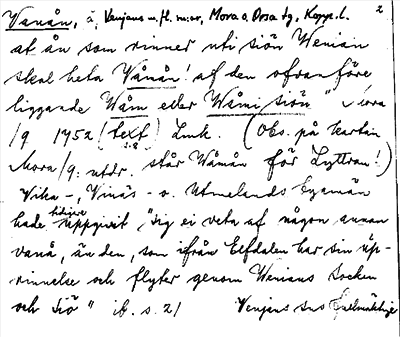 Vanån, å, Venjans m. fl. snr, Mora o. Orsa tg, Kopp. l. 2
at ån som rinner uti siön Wenian
skal heta Wånån! af den ofvanföre
liggande Wåm eller Wåmi siön" Mora
/9 1752 (text) Lmk. (Obs. på kartan
Mora/9: utdr. står Wåmån för Lyttran!)
Vika-, Vinäs- o. Utmelands byamän
hade tidigare uppgivit "sig ei veta af någon annan
vanå, än den, som ifrån Elfdalen har sin up-
rinnelse och flyter genom Wenians Socken
och Siö" ib. s. 21 Venjans sns